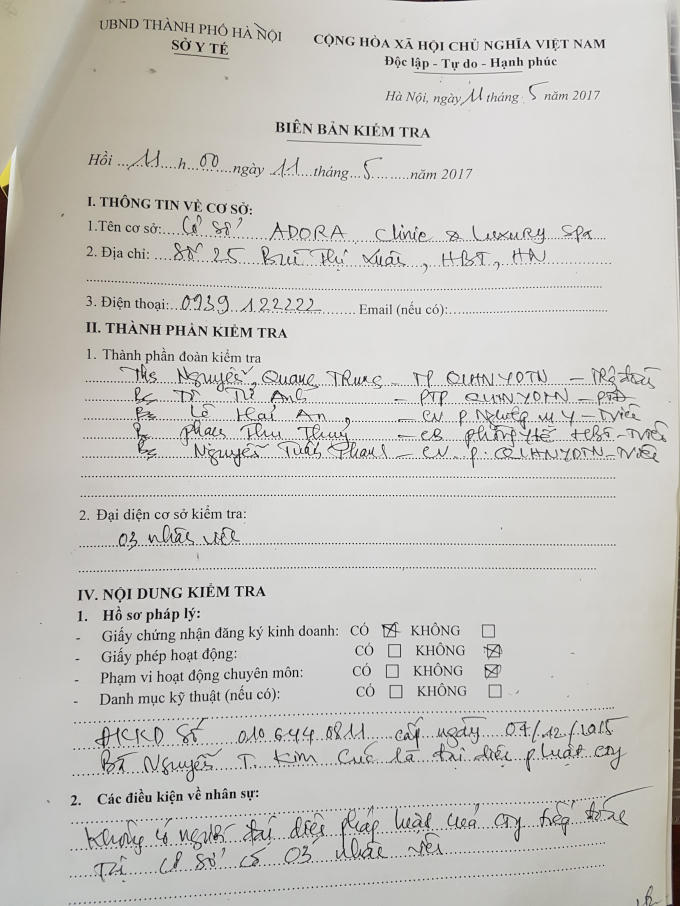 UBND THÀNH PHỐ HÀ NỘI
SỞ Y TẾ
CỘNG HÒA XÃ HỘI CHỦ NGHĨA VIỆT NAM
Độc lập - Tự do - Hạnh phúc
Hà Nội, ngày 11 tháng 5 năm 2017
BIÊN BẢN KIỂM TRA
Hồi 11 h 00 ngày 11 tháng 5 năm 2017
I. THÔNG TIN VỀ CƠ SỞ:
1.Tên cơ sở: Cơ sở ADORA Clinic & Luxury Spa
2. Địa chỉ: Số 25 Bùi Thị Xuân, HBT, HN
3. Điện thoại: 0939 122222 Email (nếu có):
II. THÀNH PHẦN KIỂM TRA
1. Thành phần đoàn kiểm tra
Ths Nguyễn Quang Trung - TP QLHNYDTN -
Bs - PTP QLHNYDTN -
Bs Lê Hải An, - CV P. -
Bs Phan Thu Thủy - CB phòng Y tế HBT -
Bs Nguyễn Tuấn - CV. P. QLHNYDTN -
2. Đại diện cơ sở kiểm tra:
03 nhân viên
IV. NỘI DUNG KIỂM TRA
1. Hồ sơ pháp lý:
- Giấy chứng nhận đăng ký kinh doanh: CÓ ☒ KHÔNG ☐
- Giấy phép hoạt động: CÓ ☐ KHÔNG ☒
- Phạm vi hoạt động chuyên môn: CÓ ☐ KHÔNG ☒
- Danh mục kỹ thuật (nếu có): CÓ ☐ KHÔNG ☐
ĐKKD số 010.644.0811 cấp ngày 07/12/2015
Bà Nguyễn T. Kim Cúc là đại diện pháp luật cty
2. Các điều kiện về nhân sự:
Không có người đại diện pháp luật của cty tiếp đoàn
Tại cơ sở có 03 nhân viên